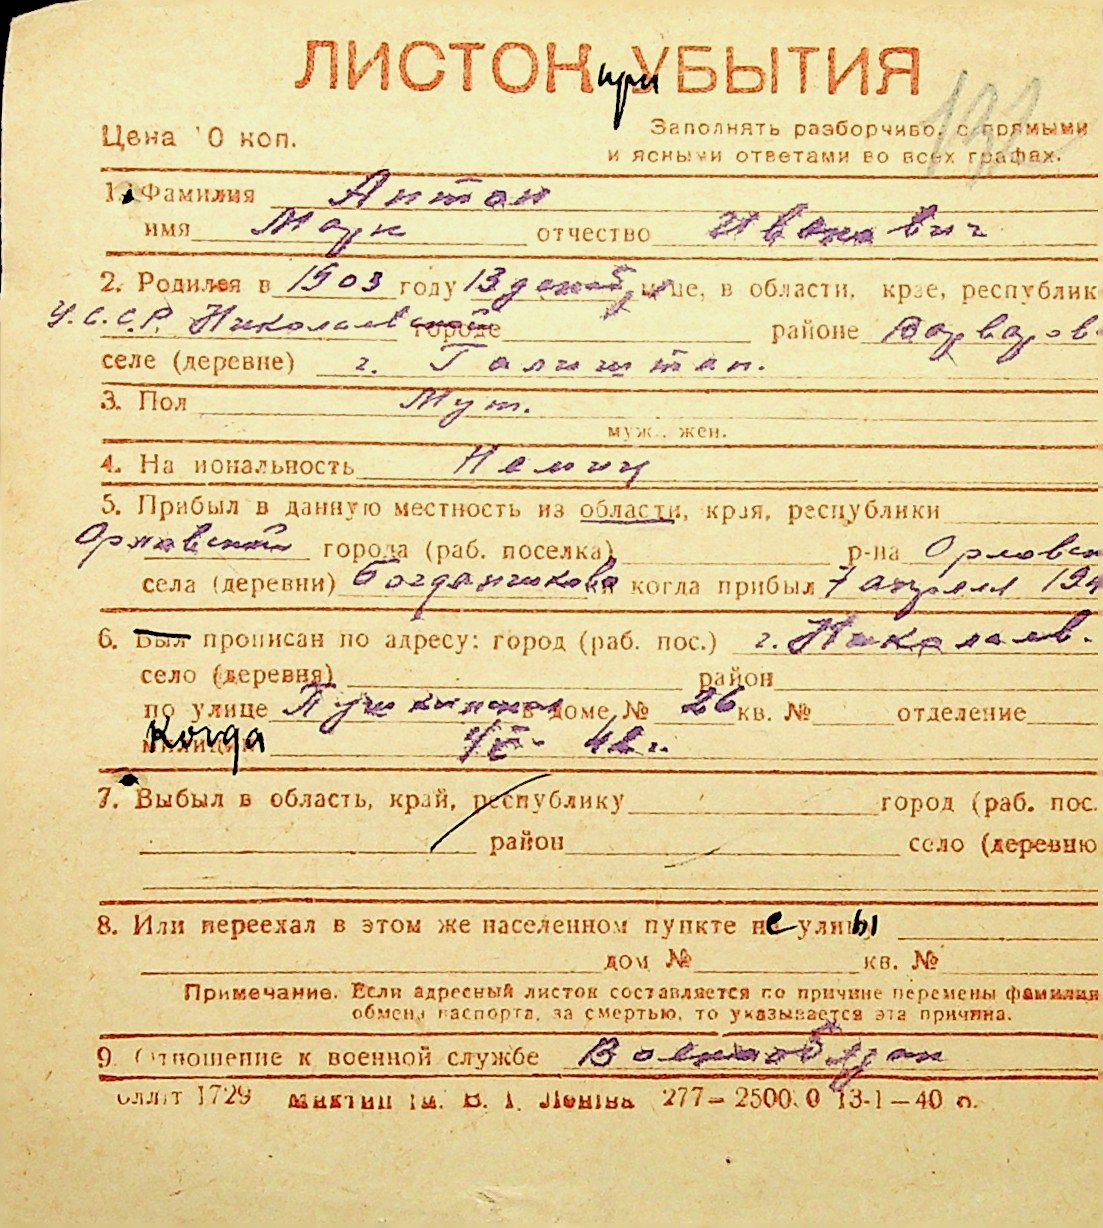 ЛИСТОК при УБЫТИЯ
Цена 10 коп.
Заполнять разборчиво, с прямыми
и ясными ответами во всех графах.
192
1. Фамилия Антон
имя Марк отчество Иванович
2. Родился в 1903 году 13 декабр м-це, в области, крае, республик
У.С.С.Р. Николаевской городе районе Варваров
селе (деревне) г. Галиштан.
3. Пол Муж.
муж., жен.
4. Национальность Немец
5. Прибыл в данную местность из области, края, республики
Орловской города (раб. поселка) р-на Орловск
села (деревни) Богданчиково и когда прибыл 7 апреля 194
6. Был прописан по адресу: город (раб. пос.) г. Николаев.
село (деревня) район
по улице Пушкинская в доме № 26 кв. № отделение
Когда милиции 4/V- 42 г.
7. Выбыл в область, край, республику город (раб. пос.
район село (деревню
8. Или переехал в этом же населенном пункте не улицы
дом № кв. №
Примечание. Если адресный листок составляется по причине перемены фамилии
обмена паспорта, за смертью, то указывается эта причина.
9. Отношение к военной службе Военнообязан
1729 ім. В. І. Леніна 277— 2500.0 13-1—40 п.